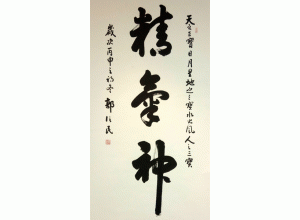 天有三寶日月星地之三寶水火風人之三寶
精氣神
歲次丙申之初冬